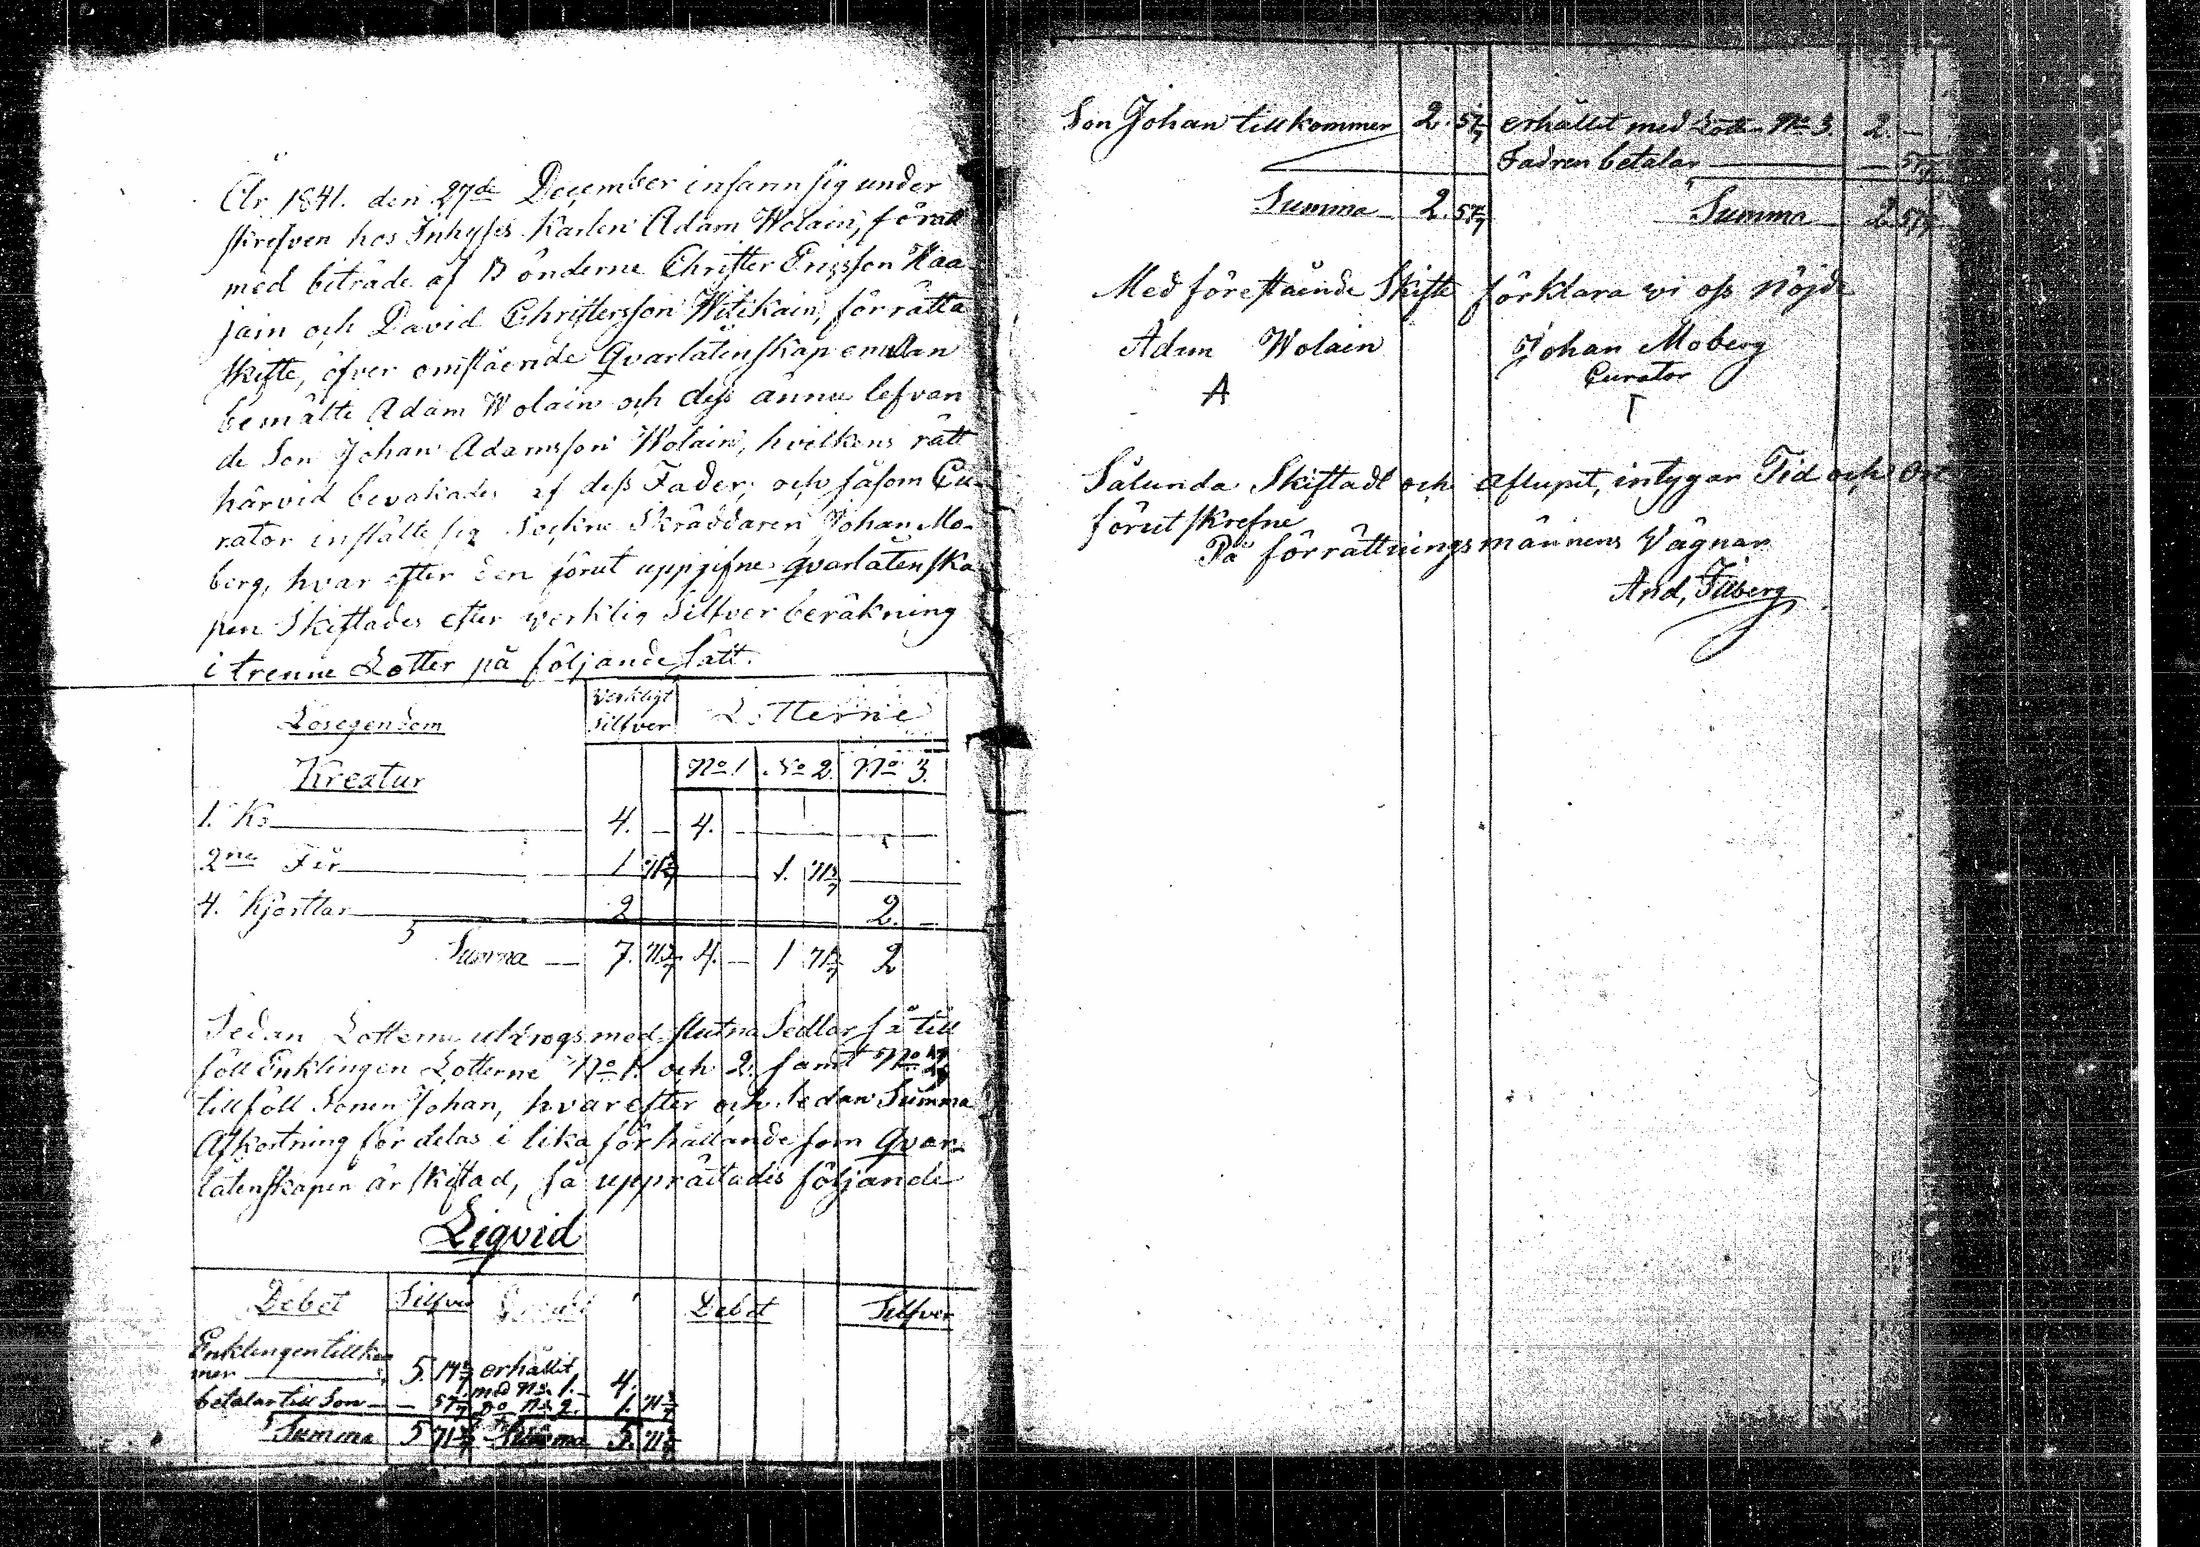 År 1841. den 27de December infann sig under
skrefven hos Inhyses Karlen Adam Wolain, för att
med biträde af Bönderne Christer Ericsson Haa-
jain och David Christersson Witikain, förrätta
skifte, öfver omstående Qvarlåtenskap emellan
bemälte Adam Wolain och dess ännu lefvan
de Son Johan Adamsson Wolain, hvilkens rätt
härvid bevakades af dess Fader, och såsom Cu-
rator inställte sig Sockne Skräddaren Johan Mo-
berg, hvar efter den förut uppgifne qvarlåtenska
pen Skiftades efter verklig Silfver beräkning
i trenne Lotter på följande sätt.
Lösegendom Verkligt Silfver Lotterne
Kreatur No 1 No 2. No 3.
1. Ko 4. — 4. —
2ne Får 1 71 3/7 1. 71 3/7
4. Kjortlar 2 2. —
Summa — 7. 71 3/7 4. — 1 71 3/7 2
Sedan Lotterne utdrogs med slutna Sedlar så till
föll Enklingen Lotterne No 1. och 2. samt No
tillföll Sonen Johan, hvarefter och sedan Summa
Afkortning för delas i lika förhållande som Qvar-
låtenskapen är skiftad, så upprättades följande
Liqvid
Debet Silfver Debet Silfver
Enklingen tillkom
mer 5. 14 2/7 erhållit
med No. 1. 4.
betalar till Son — — 57 1/7 Do No 2. 1. 71 3/7
Summa 5 71 3/7 Summa 5. 71 3/7
Son Johan tillkommer 2. 57 1/7 erhållit med Lott No 3. 2. —
Fadren betalar — — 57 1/7
Summa 2. 57 1/7 Summa 2. 57 1/7
Med förestående Skifte förklara vi oss nöjde
Adam Wolain Johan Moberg
Curator
A
Sålunda Skiftadt och aflupit, intygar Tid och Ort
förut skrefne
På förrättningsmännens Vägnar
And, Filberg